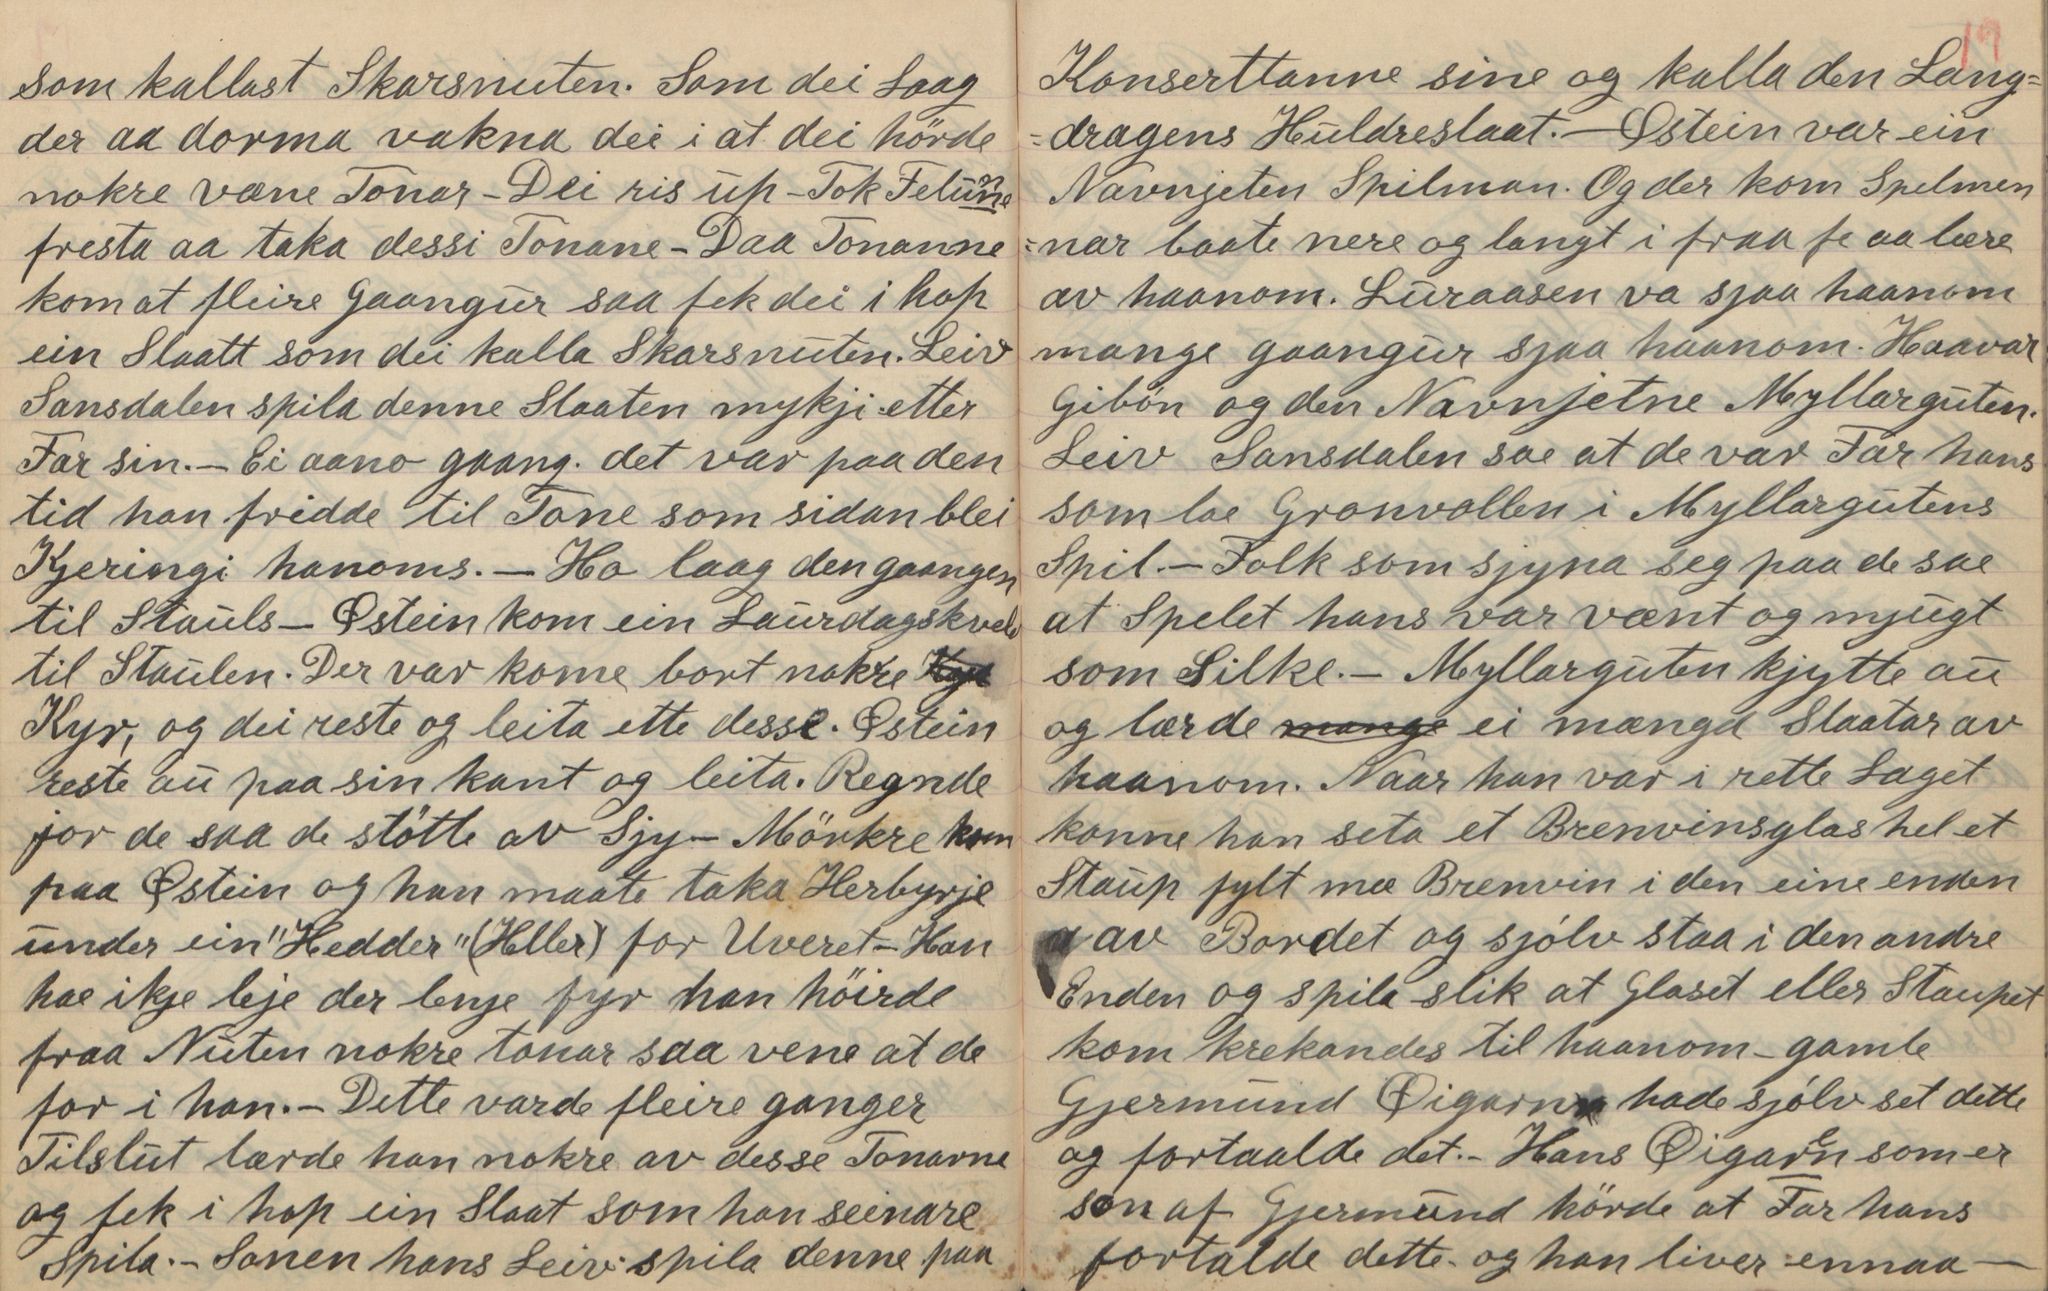 som kallast Skarsnuten. Som dei Laag
der aa dorma vakna dei i at dei hörde
nokre væne Tonar – Dei ris up – Tok Felune
fresta aa taka dessi Tonane – Daa Tonanne
kom at fleire Gaangur saa fek dei i hop
ein Slaatt som dei kalla Skarsnuten. Leiv
Sansdalen spila denne Slaaten mykji etter
Far sin. – Ei aano gaang. det var paa den
tid han fridde til Tone som sidan blei
Kjeringi hanoms. – Ho laag den gaangen
til Stauls – Østein kom ein Laurdagskveld
til Staulen. Der var kome bort nokre
Kyr, og dei reste og leita ette desse. Østein
reste au paa sin kant og leita. Regnde
jor de saa de stötte av Sjy – Mörkre kom
paa Østein og han maate taka Herbyrje
under ein "Hedder" (Hller) for Uveret – Han
hae ikje leje der lenje fyr han höirde
fraa Nuten nokre tonar saa vene at de
for i han. – Dette varde fleire ganger
Tilslut lærde han nokre av desse Tonarne
og fek i hop ein Slaat som han seinare
Spila. – Sonen hans Leiv spila denne paa
19
Konserttanne sine og kalla den Lang=
=dragens Huldreslaat. – Østein var ein
Navnjeten Spilman. Og der kom Spelmen
=nar baate nere og langt i fraa fe aa lære
av haanom. Luraasen va sjaa haanom
mange gaangur sjaa haanom. Haavar
Gibøn og den Navnjetne Myllarguten.
Leiv Sansdalen sae at de var Far hans
som lae Gronvollen i Myllargutens
Spil. – Folk som sjyna seg paa de sae
at Spelet hans var vænt og mjugt
som Silke. – Myllarguten kjytte au
og lærde mange ei mængd Slaatar av
haanom. Naar han var i rette Laget
konne han seta et Brenvinsglas hel et
Staup fylt mæ Brenvin i den eine enden
av Bordet og sjølv staa i den andre
Enden og spila slik at Glaset eller Staupet
kom krekandes til haanom – gamle
Gjermund Øigarn hade sjølv set dette
og fortaalde det. – Hans Øigaren som er
son af Gjermund hörde at Far hans
fortalde dette. og han liver ennaa –